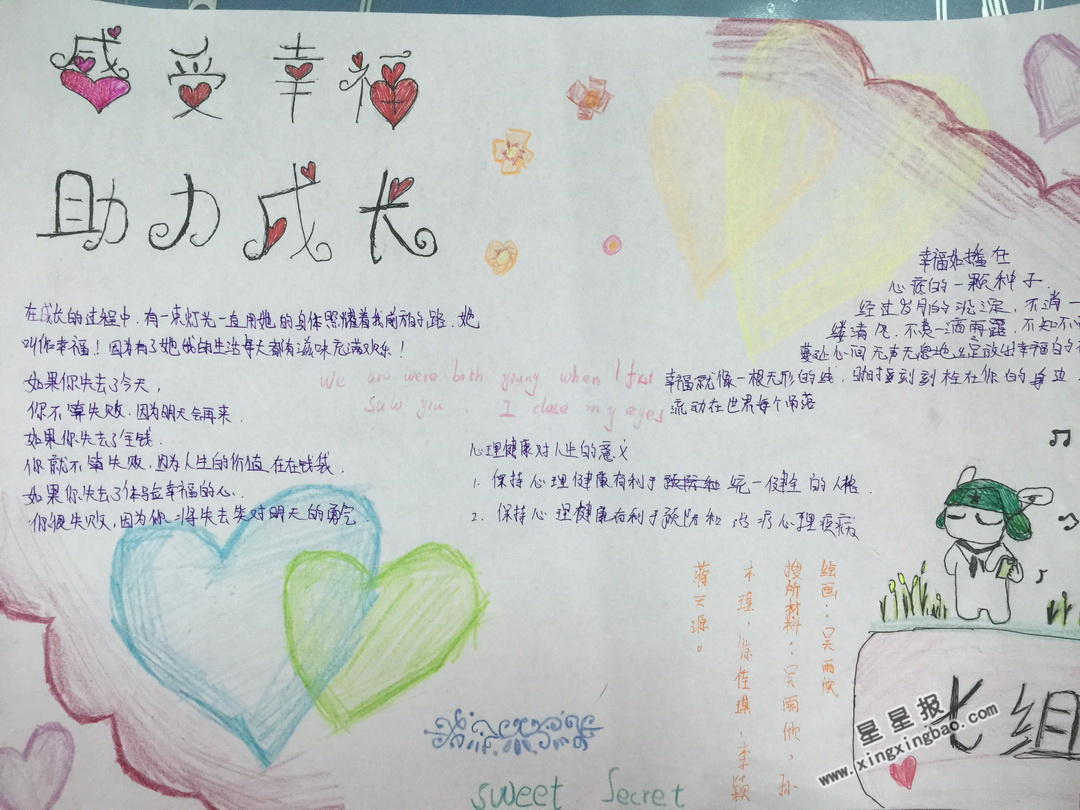 感受幸福
助力成长
在成长的过程中,有一束灯光一直用她的身体照耀着我前行的路,她
叫作幸福!因为有了她我的生活每天都有滋味充满欢乐!
如果你失去了今天,
你不算失败,因为明天会再来
如果你失去了金钱.
你就不算失败,因为人生的价值在在钱袋.
如果你失去了体验幸福的心.
你很失败,因为你将失去失对明天的勇气.
We are were both young when I first
saw you. I close my eyes
幸福如播在
心该的一颗种子.
经过岁月的沉淀,不消一
缕清风.不费一滴雨露.不知不
蔓延心间无声无息地绽放出幸福的
幸福就像一根无形的线,
流动在世界每个角落
心理健康对人生的意义
1. 保持心理健康有利于统一健全的人格.
2. 保持心理健康有利于预防和治疗心理疾病
绘画:吴雨欣
搜所材料:吴雨欣,孙
木瑾,徐佳琪,李颖
蒋云源。
长组
sweet Secret
星星报
www.xingxingbao.com